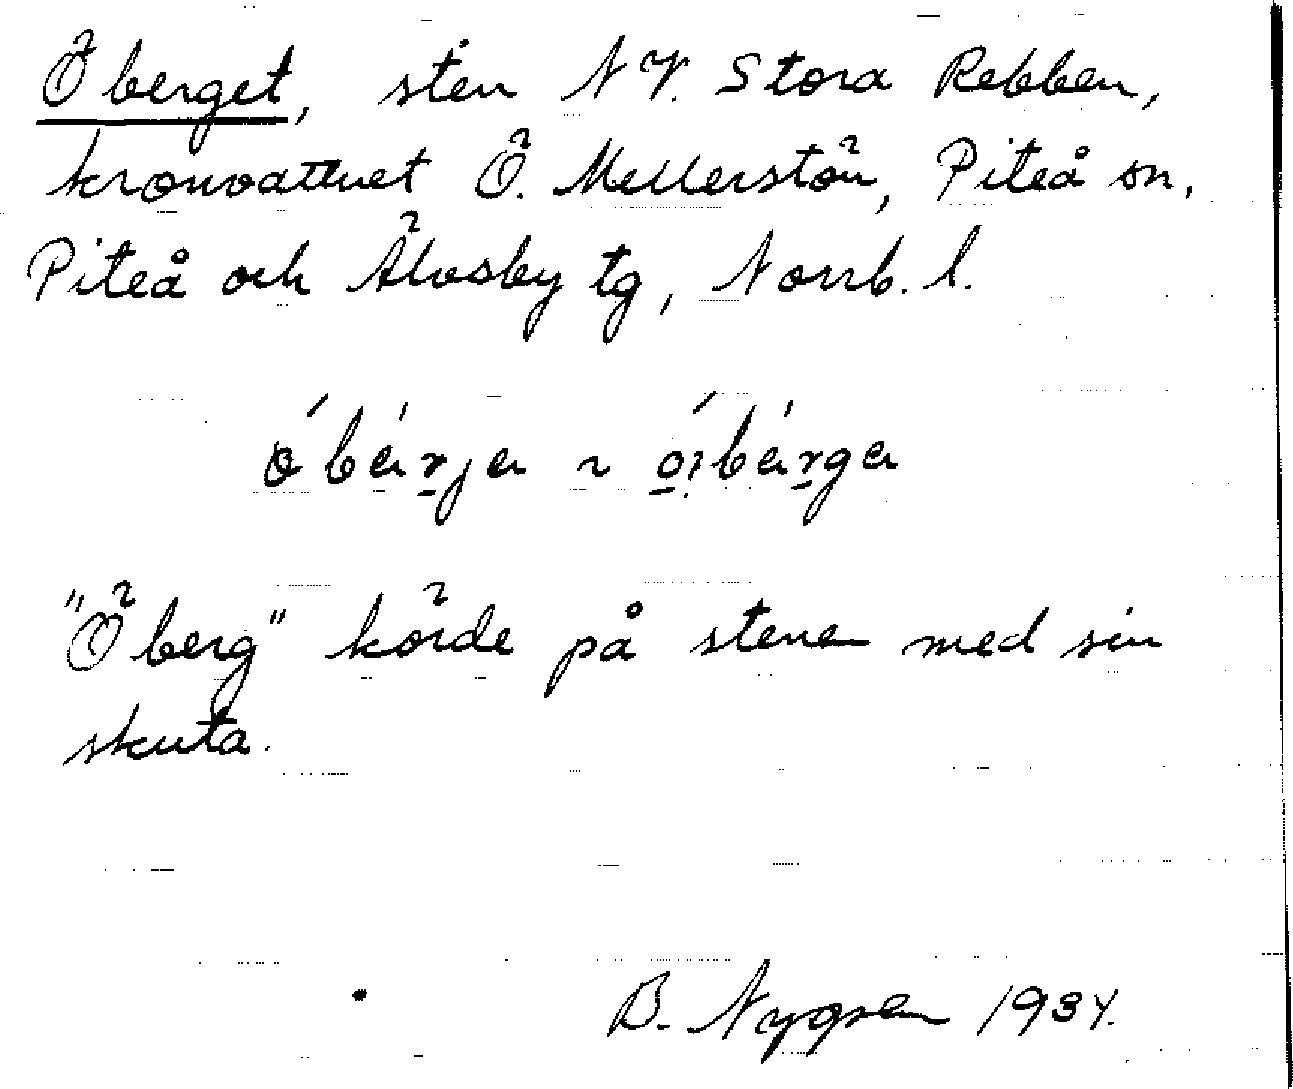 Öberget, sten N V. Stora Rebben,
kronovattnet Ö. Mellerstön, Piteå sn,
Piteå och Älvsby tg, Norrb. l.
"Öberg" körde på stenen med sin
skuta.
B. Nygren 1934.